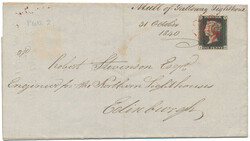 Mull of Galloway Lighthouse
31 October
1840
Robert Stevenson Esqr
Engineer for the Northern Lighthouses
Edinburgh